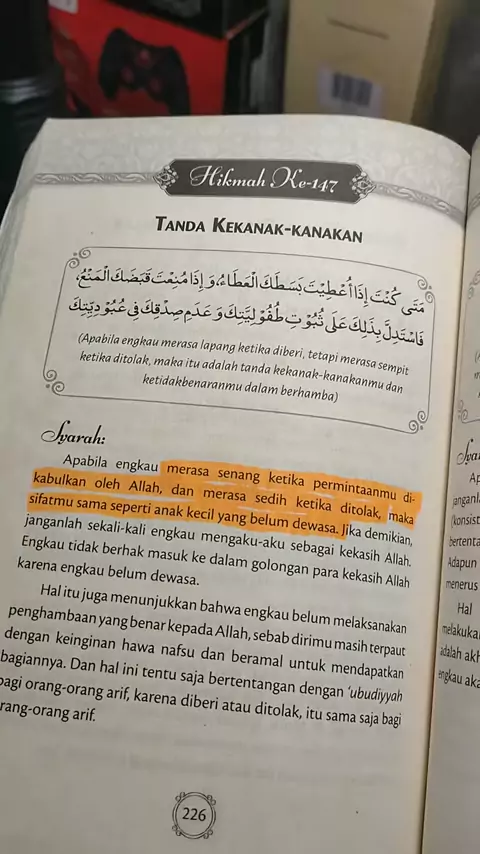 Hikmah Ke-147
TANDA KEKANAK-KANAKAN
مَتَى كُنْتَ إِذَا أُعْطِيْتَ بَسَطَكَ الْعَطَاءُ، وَإِذَا مُنِعْتَ قَبَضَكَ الْمَنْعُ،
فَاسْتَدِلَّ بِذَلِكَ عَلَى ثُبُوْتِ طُفُوْلِيَّتِكَ وَعَدَمِ صِدْقِكَ فِي عُبُوْدِيَّتِكَ
(Apabila engkau merasa lapang ketika diberi, tetapi merasa sempit
ketika ditolak, maka itu adalah tanda kekanak-kanakanmu dan
ketidakbenaranmu dalam berhamba)
Syarah:
Apabila engkau merasa senang ketika permintaanmu di-
kabulkan oleh Allah, dan merasa sedih ketika ditolak, maka
sifatmu sama seperti anak kecil yang belum dewasa. Jika demikian,
janganlah sekali-kali engkau mengaku-aku sebagai kekasih Allah.
Engkau tidak berhak masuk ke dalam golongan para kekasih Allah
karena engkau belum dewasa.
Hal itu juga menunjukkan bahwa engkau belum melaksanakan
penghambaan yang benar kepada Allah, sebab dirimu masih terpaut
dengan keinginan hawa nafsu dan beramal untuk mendapatkan
bagiannya. Dan hal ini tentu saja bertentangan dengan 'ubudiyyah
bagi orang-orang arif, karena diberi atau ditolak, itu sama saja bagi
rang-orang arif.
226
(konsist
bertenta
Adapun
menerus
Hal
melakukan
adalah akh
engkau aka